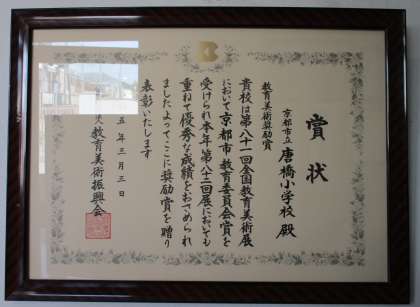 賞状
京都市立 唐橋小学校 殿
教育美術奨励賞
貴校は第八十一回全国教育美術展
において京都市教育委員会賞を
受けられ本年第八十二回展においても
重ねて優秀な成績をおさめられ
ましたよってここに奨励賞を贈り
表彰いたします
五年三月三日
教育美術振興会